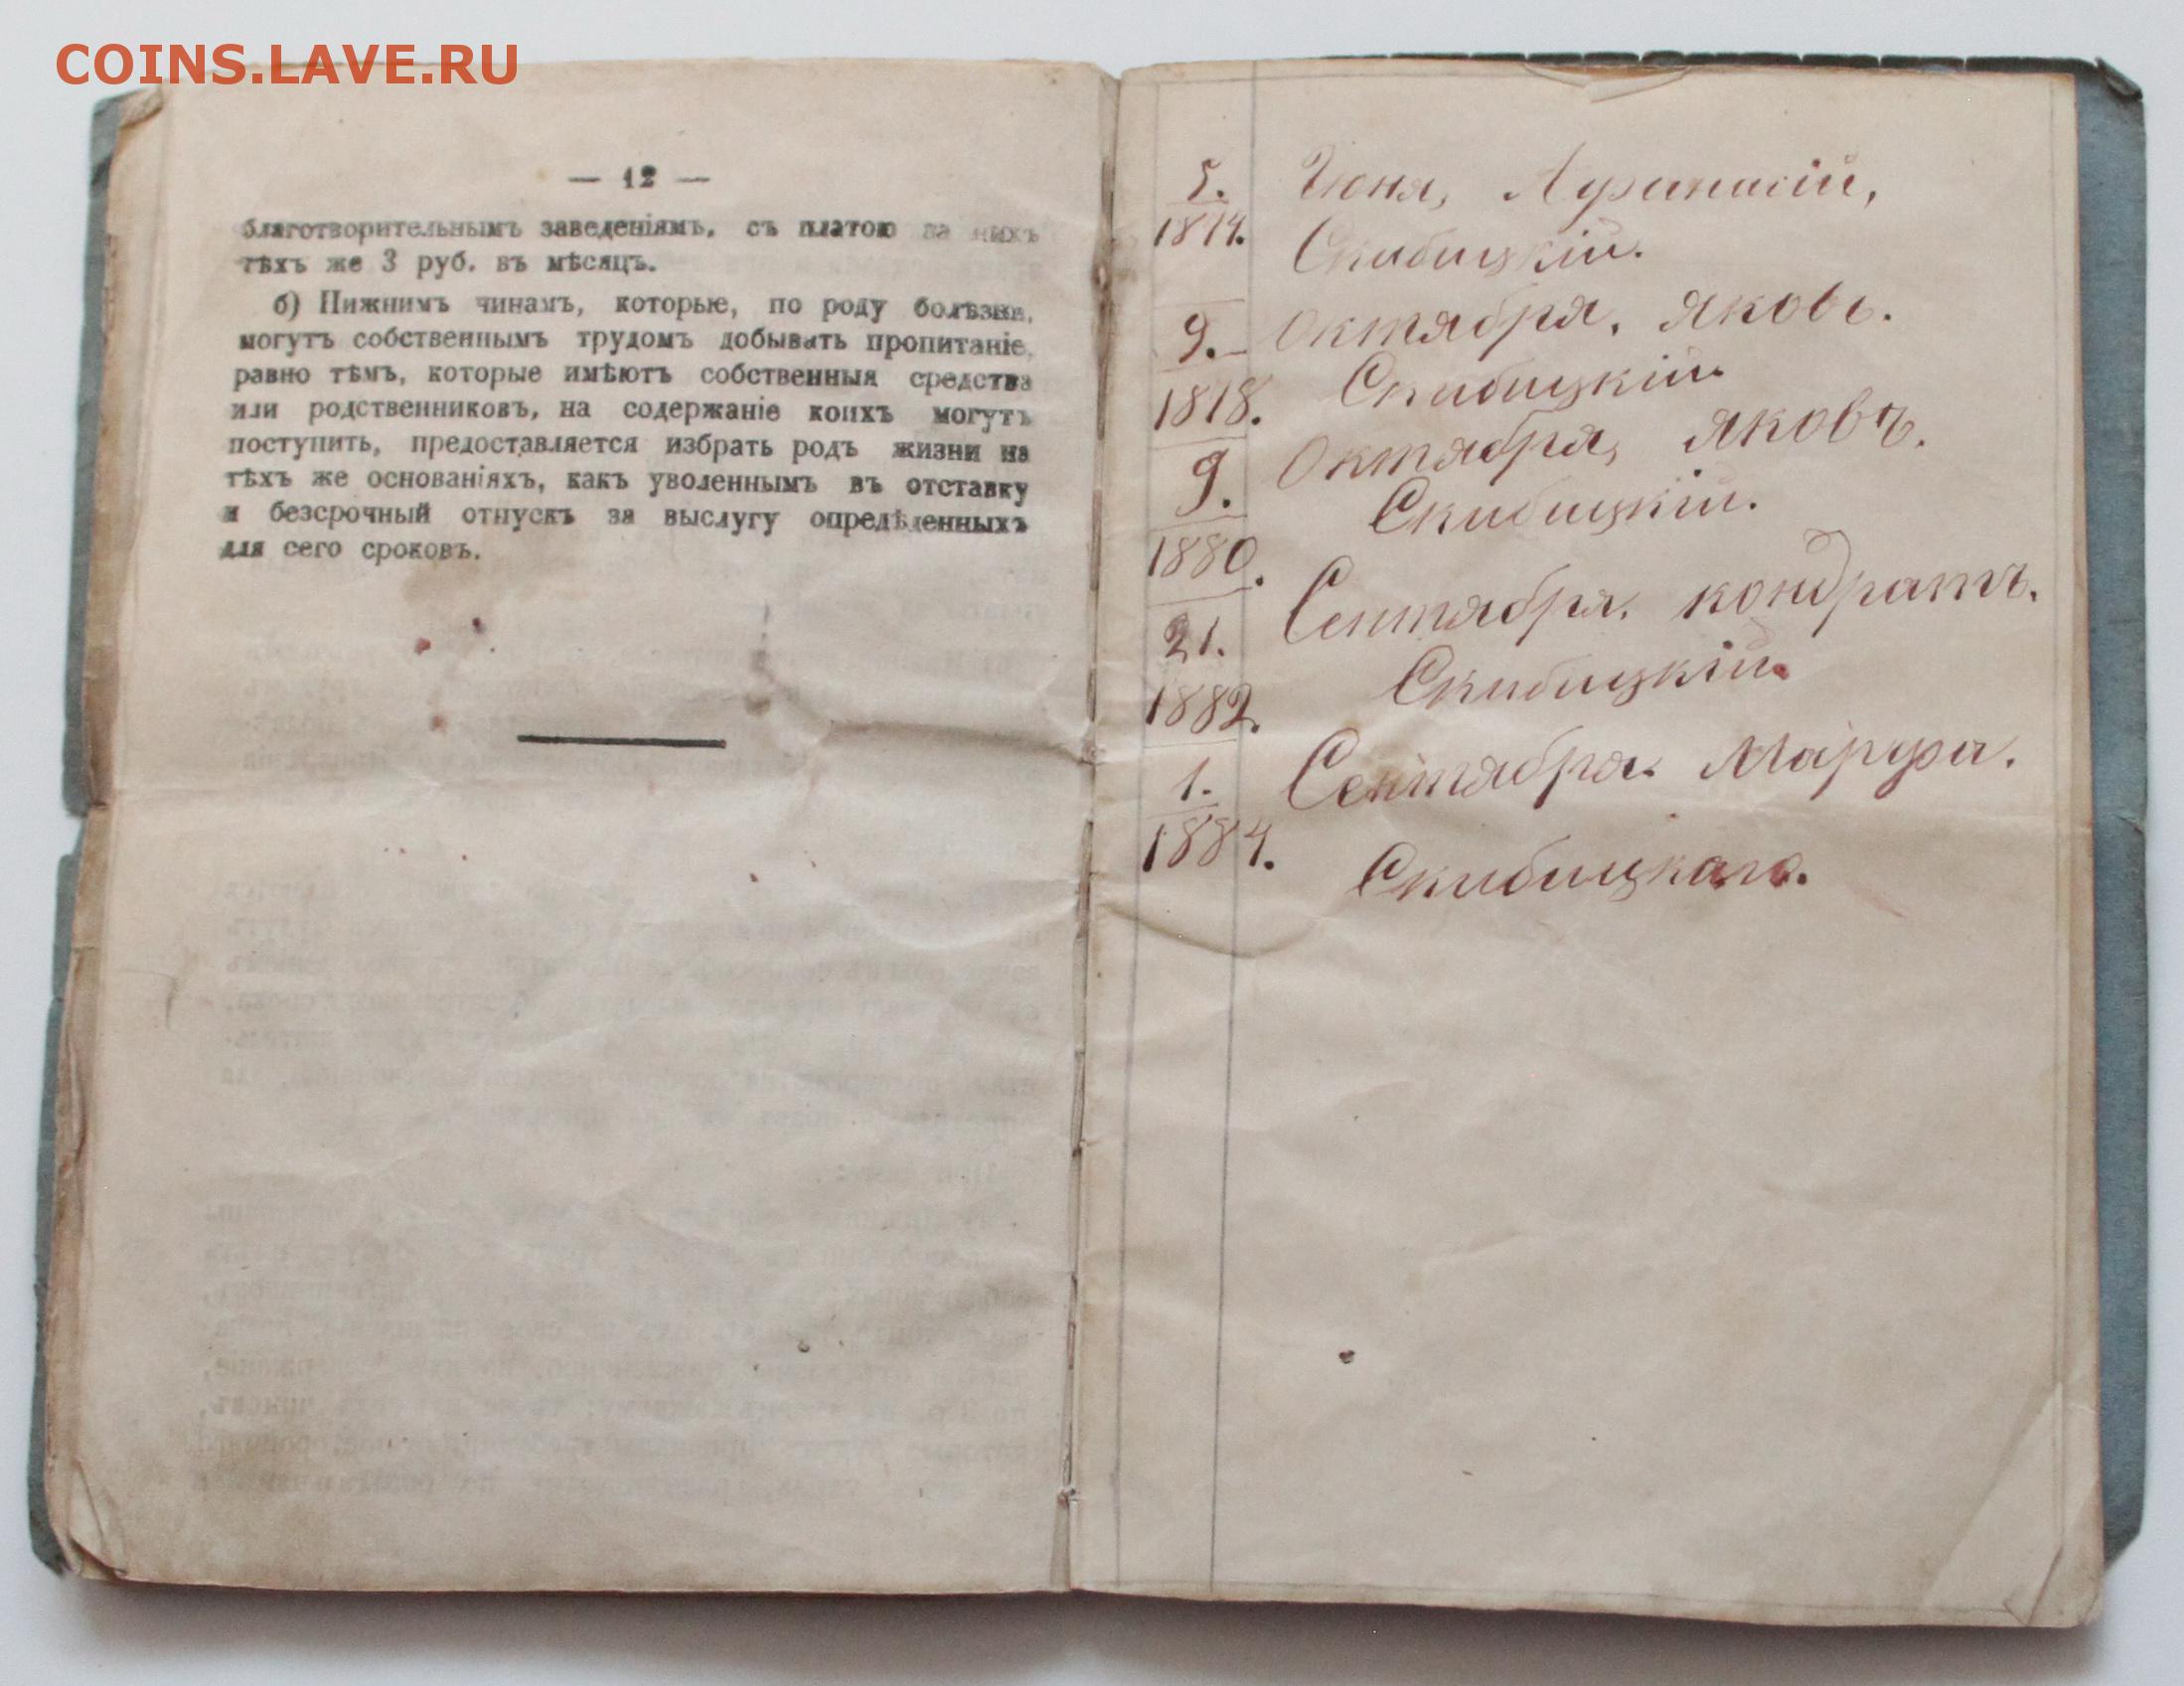 COINS.LAVE.RU
— 12 —
благотворительнымъ заведеніямъ, съ платою за нихъ
тѣхъ же 3 руб. въ мѣсяцъ.
б) Нижнимъ чинамъ, которые, по роду болѣзни,
могутъ собственнымъ трудомъ добывать пропитаніе,
равно тѣмъ, которые имѣютъ собственныя средства
или родственниковъ, на содержаніе коихъ могутъ
поступить, предоставляется избрать родъ жизни на
тѣхъ же основаніяхъ, какъ уволеннымъ въ отставку
и безсрочный отпускъ за выслугу опредѣленныхъ
для сего сроковъ.
5. Іюня, Афанасій,
1874. Скибицкій.
9. Октября, Яковъ.
1878. Скибицкій.
9. Октября, Яковъ.
1880. Скибицкій.
21. Сентября. кондратъ.
1882. Скибицкій.
1. Сентября. Марфа.
1884. Скибицкаго.